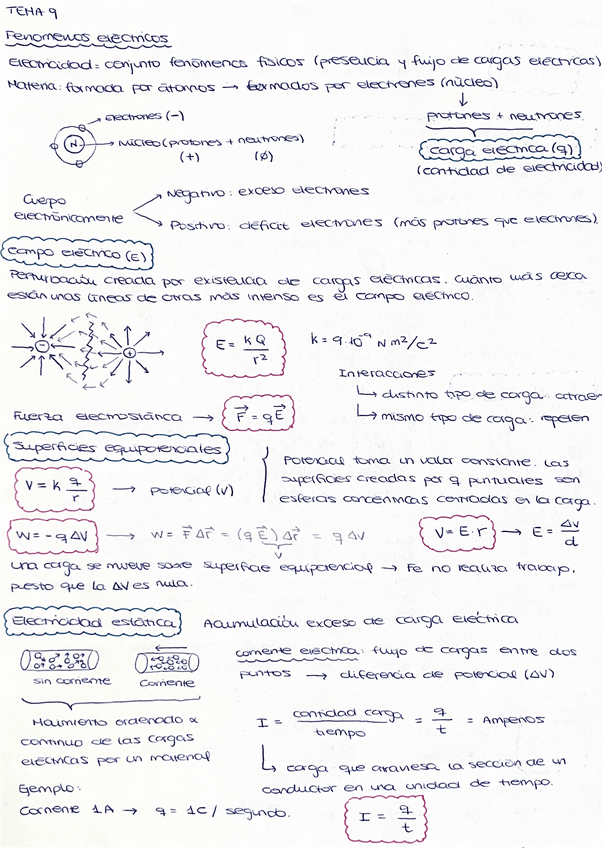 TEMA 9
Fenomenos eléctricos
Electricidad = conjunto fenómenos físicos (presencia y flujo de cargas eléctricas)
Materia: formada por átomos → formados por electrones (núcleo)
↓
protones + neutrones
electrones (-)
N → Núcleo (protones + neutrones)
(+) (∅)
carga eléctrica (q)
(cantidad de electricidad)
Cuerpo electrónicamente
Negativo: exceso electrones
Positivo: déficit electrones (más protones que electrones).
Campo eléctrico (E)
Perturbación creada por existencia de cargas eléctricas. Cuánto más cerca
están unas líneas de otras más intenso es el campo eléctrico.
- +
E = KQ / r²
k = 9·10⁻⁹ N m²/c²
Interacciones
↳ distinto tipo de carga: atraen
↳ mismo tipo de carga: repelen
Fuerza electrostática → F = qE
Superficies equipotenciales
V = k q/r → potencial (V)
Potencial toma un valor constante. Las
superficies creadas por q puntuales son
esferas concéntricas centradas en la carga.
W = -q ΔV → W = F Δr = (q E) Δr = q ΔV
V
V = E·r → E = ΔV/d
Una carga se mueve sobre superficie equipotencial → Fe no realiza trabajo,
puesto que la ΔV es nula.
Electricidad estática Acumulación exceso de carga eléctrica
sin corriente corriente
corriente eléctrica: flujo de cargas entre dos
puntos → diferencia de potencial (ΔV)
Movimiento ordenado
continuo de las cargas
eléctricas por un material
I = cantidad carga / tiempo = q/t = Amperios
↳ carga que atraviesa la sección de un
conductor en una unidad de tiempo.
Ejemplo:
Corriente 1A → q = 1C / segundo.
I = q/t